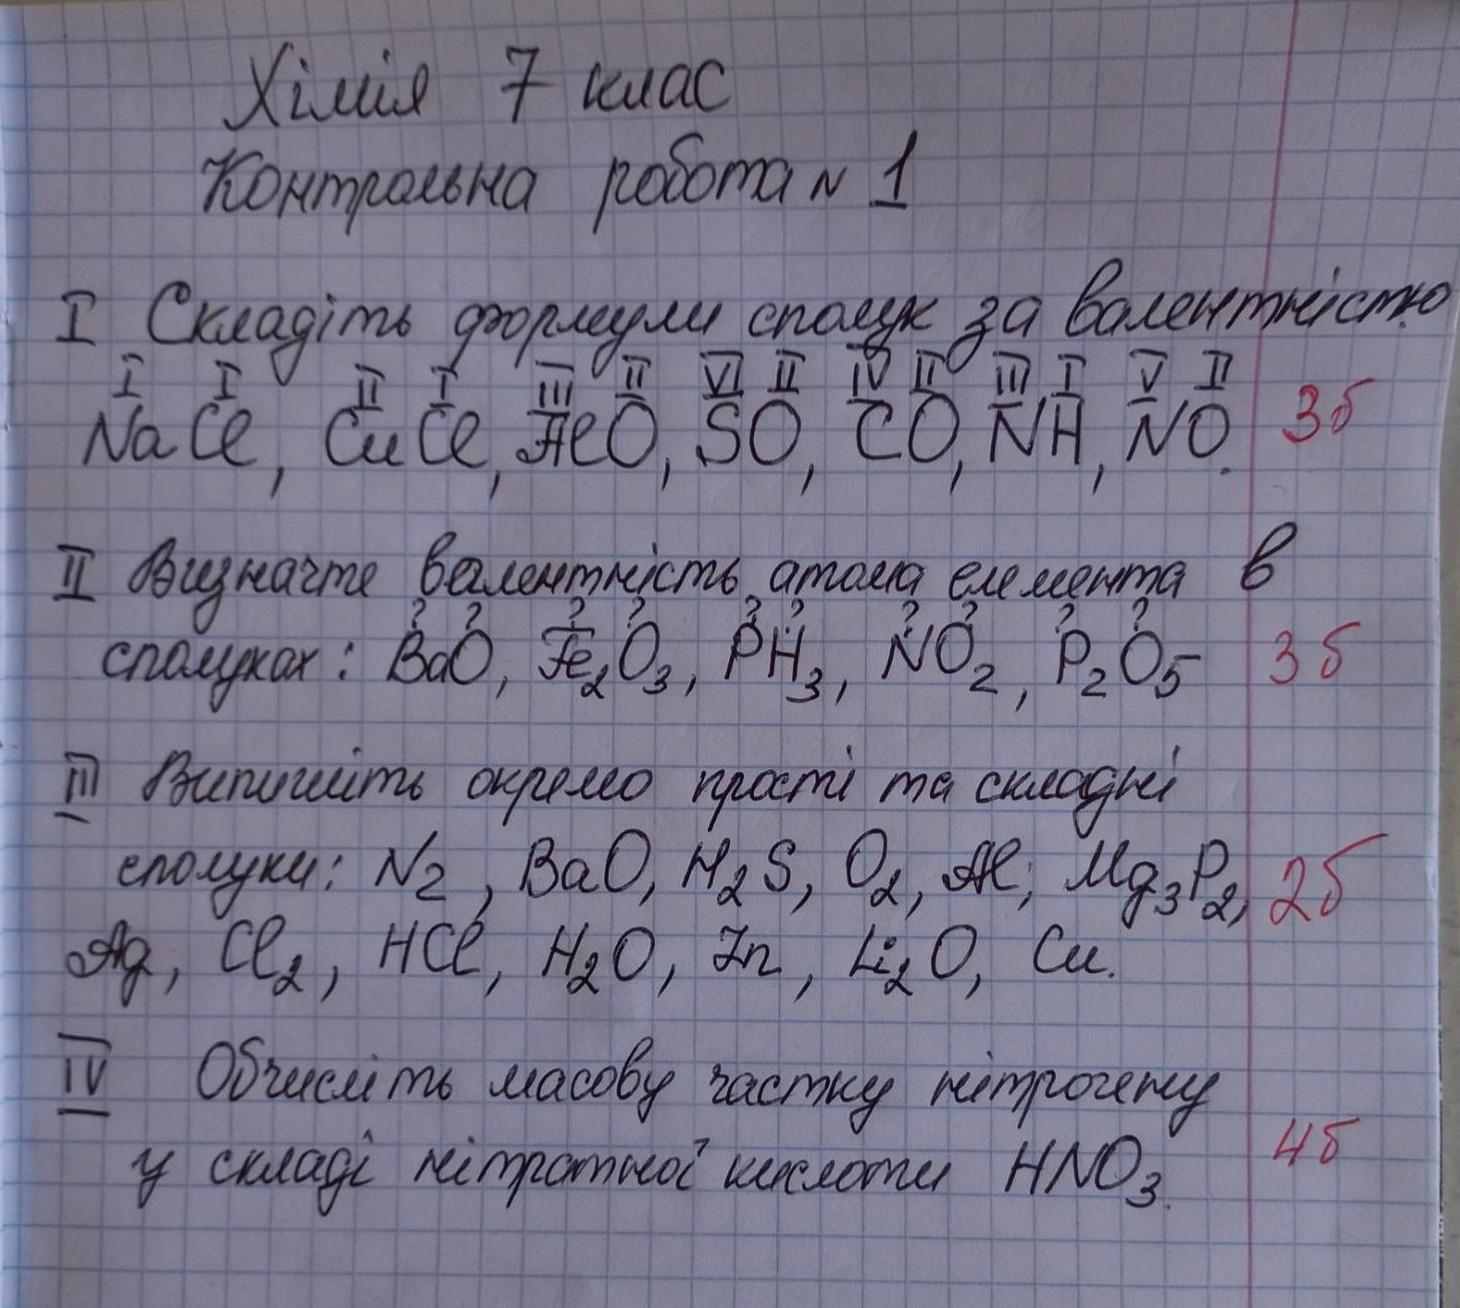 Хімія 7 клас
Контрольна робота № 1
I Складіть формули сполук за валентністю
I I II I III II VI II IV II III I V II
NaCl, CuCl, AlO, SO, CO, NH, NO. 3б
II Визначте валентність атома елемента в
? ? ? ? ? ? ? ? ? ?
сполуках: BaO, Fe2O3, PH3, NO2, P2O5 3б
III Випишіть окремо прості та складні
сполуки: N2, BaO, H2S, O2, Al, Mg3P2, 2б
Ag, Cl2, HCl, H2O, Zn, Li2O, Cu.
IV Обчисліть масову частку нітрогену
у складі нітратної кислоти HNO3. 4б